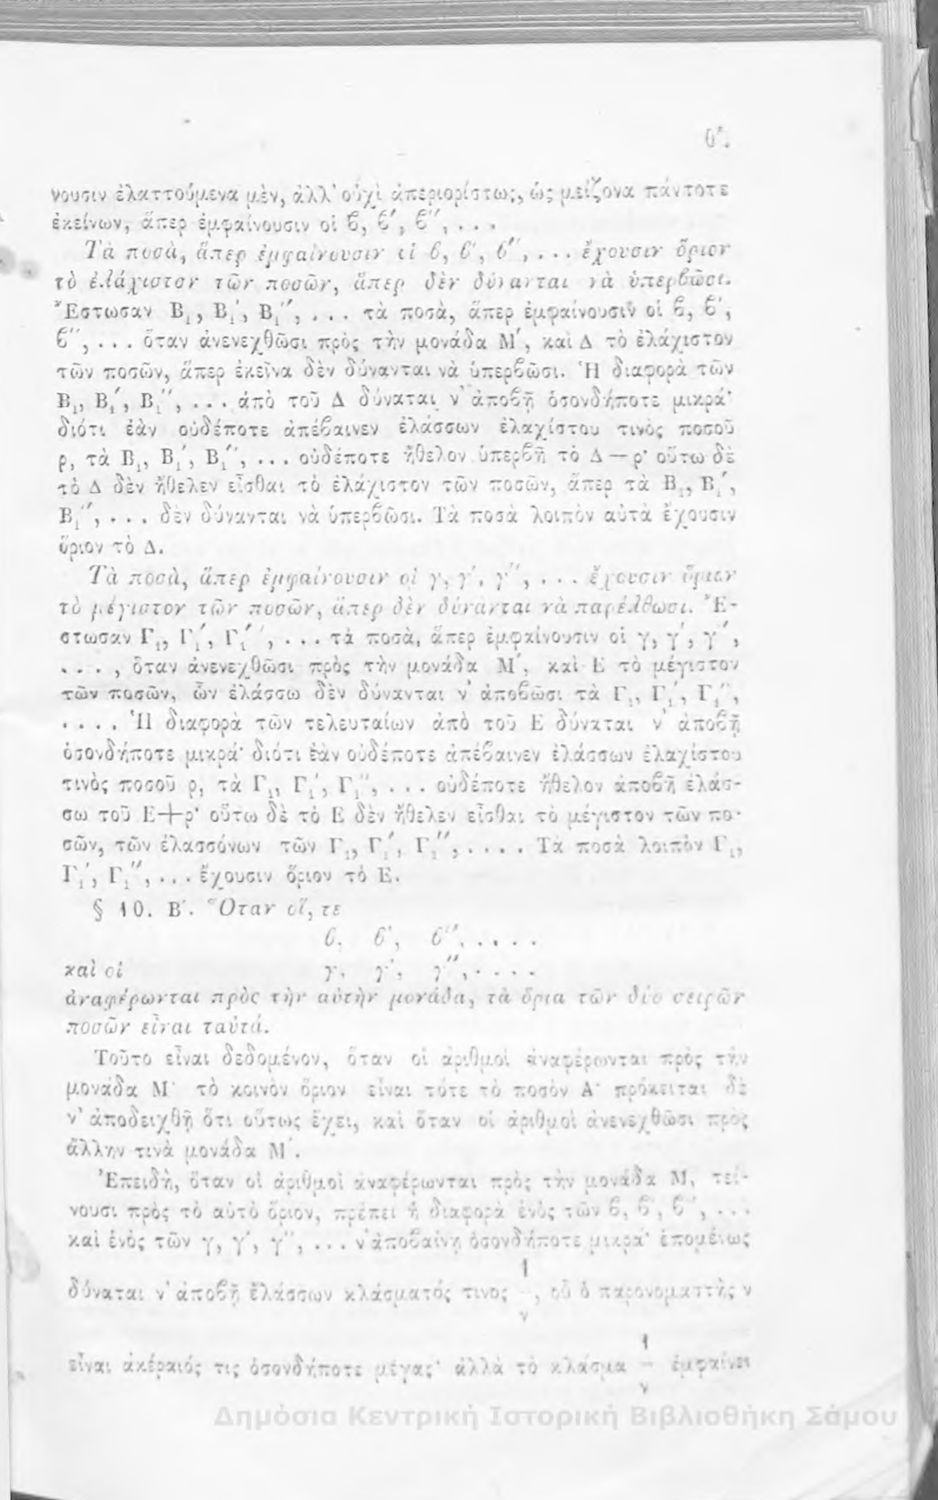 θ΄.
νουσιν ἐλαττούμενα μὲν, ἀλλ' οὐχὶ ἀπεριορίστως, ὡς μείζονα πάντοτε
ἐκείνων, ἅπερ ἐμφαίνουσιν οἱ ϐ, ϐ', ϐ'', . . .
Τὰ ποσὰ, ἅπερ ἐμφαίνουσιν οἱ ϐ, ϐ', ϐ'', . . . ἔχουσιν ὅριον
τὸ ἐλάχιστον τῶν ποσῶν, ἅπερ δὲν δύνανται νὰ ὑπερϐῶσι.
Ἔστωσαν Β₁, Β₁', Β₁'', . . . τὰ ποσὰ, ἅπερ ἐμφαίνουσιν οἱ ϐ, ϐ',
ϐ'', . . . ὅταν ἀνενεχθῶσι πρὸς τὴν μονάδα Μ', καὶ Δ τὸ ἐλάχιστον
τῶν ποσῶν, ἅπερ ἐκεῖνα δὲν δύνανται νὰ ὑπερϐῶσι. Ἡ διαφορὰ τῶν
Β₁, Β₁', Β₁'', . . . ἀπὸ τοῦ Δ δύναται ν' ἀποϐῇ ὁσονδήποτε μικρά·
διότι ἐὰν οὐδέποτε ἀπέϐαινεν ἐλάσσων ἐλαχίστου τινὸς ποσοῦ
ρ, τὰ Β₁, Β₁', Β₁'', . . . οὐδέποτε ἤθελον ὑπερϐῆ τὸ Δ — ρ· οὕτω δὲ
τὸ Δ δὲν ἤθελεν εἶσθαι τὸ ἐλάχιστον τῶν ποσῶν, ἅπερ τὰ Β₁, Β₁',
Β₁'', . . . δὲν δύνανται νὰ ὑπερϐῶσι. Τὰ ποσὰ λοιπὸν αὐτὰ ἔχουσιν
ὅριον τὸ Δ.
Τὰ ποσὰ, ἅπερ ἐμφαίνουσιν οἱ γ, γ', γ'', . . . ἔχουσιν ὅριον
τὸ μέγιστον τῶν ποσῶν, ἅπερ δὲν δύνανται νὰ παρέλθωσι. Ἔ-
στωσαν Γ₁, Γ₁', Γ₁'', . . . τὰ ποσὰ, ἅπερ ἐμφαίνουσιν οἱ γ, γ', γ'',
. . . . , ὅταν ἀνενεχθῶσι πρὸς τὴν μονάδα Μ', καὶ Ε τὸ μέγιστον
τῶν ποσῶν, ὧν ἐλάσσω δὲν δύνανται ν' ἀποϐῶσι τὰ Γ₁, Γ₁', Γ₁'',
. . . . Ἡ διαφορὰ τῶν τελευταίων ἀπὸ τοῦ Ε δύναται ν' ἀποϐῇ
ὁσονδήποτε μικρά· διότι ἐὰν οὐδέποτε ἀπέϐαινεν ἐλάσσων ἐλαχίστου
τινὸς ποσοῦ ρ, τὰ Γ₁, Γ₁', Γ₁'', . . . οὐδέποτε ἤθελον ἀποϐῆ ἐλάσ-
σω τοῦ Ε+ρ· οὕτω δὲ τὸ Ε δὲν ἤθελεν εἶσθαι τὸ μέγιστον τῶν πο-
σῶν, τῶν ἐλασσόνων τῶν Γ₁, Γ₁', Γ₁'', . . . . Τὰ ποσὰ λοιπὸν Γ₁,
Γ₁', Γ₁'', . . . ἔχουσιν ὅριον τὸ Ε.
§ 10. Β'. Ὅταν οἵ, τε
ϐ, ϐ', ϐ'', . . . .
καὶ οἱ γ, γ', γ'', . . . .
ἀναφέρωνται πρὸς τὴν αὐτὴν μονάδα, τὰ ὅρια τῶν δύο σειρῶν
ποσῶν εἶναι ταὐτά.
Τοῦτο εἶναι δεδομένον, ὅταν οἱ ἀριθμοὶ ἀναφέρωνται πρὸς τὴν
μονάδα Μ· τὸ κοινὸν ὅριον εἶναι τότε τὸ ποσόν Α· πρόκειται δὲ
ν' ἀποδειχθῇ ὅτι οὕτως ἔχει, καὶ ὅταν οἱ ἀριθμοὶ ἀνενεχθῶσι πρὸς
ἄλλην τινὰ μονάδα Μ'.
Ἐπειδὴ, ὅταν οἱ ἀριθμοὶ ἀναφέρωνται πρὸς τὴν μονάδα Μ, τεί-
νουσι πρὸς τὸ αὐτὸ ὅριον, πρέπει ἡ διαφορὰ ἑνὸς τῶν ϐ, ϐ', ϐ'', . . .
καὶ ἑνὸς τῶν γ, γ', γ'', . . . ν' ἀποϐαίνῃ ὁσονδήποτε μικρά· ἑπομένως
δύναται ν' ἀποϐῇ ἐλάσσων κλάσματός τινος 1/ν, οὗ ὁ παρονομαστὴς ν
εἶναι ἀκέραιός τις ὁσονδήποτε μέγας· ἀλλὰ τὸ κλάσμα 1/ν ἐμφαίνει
Δημόσια Κεντρική Ιστορική Βιβλιοθήκη Σάμου